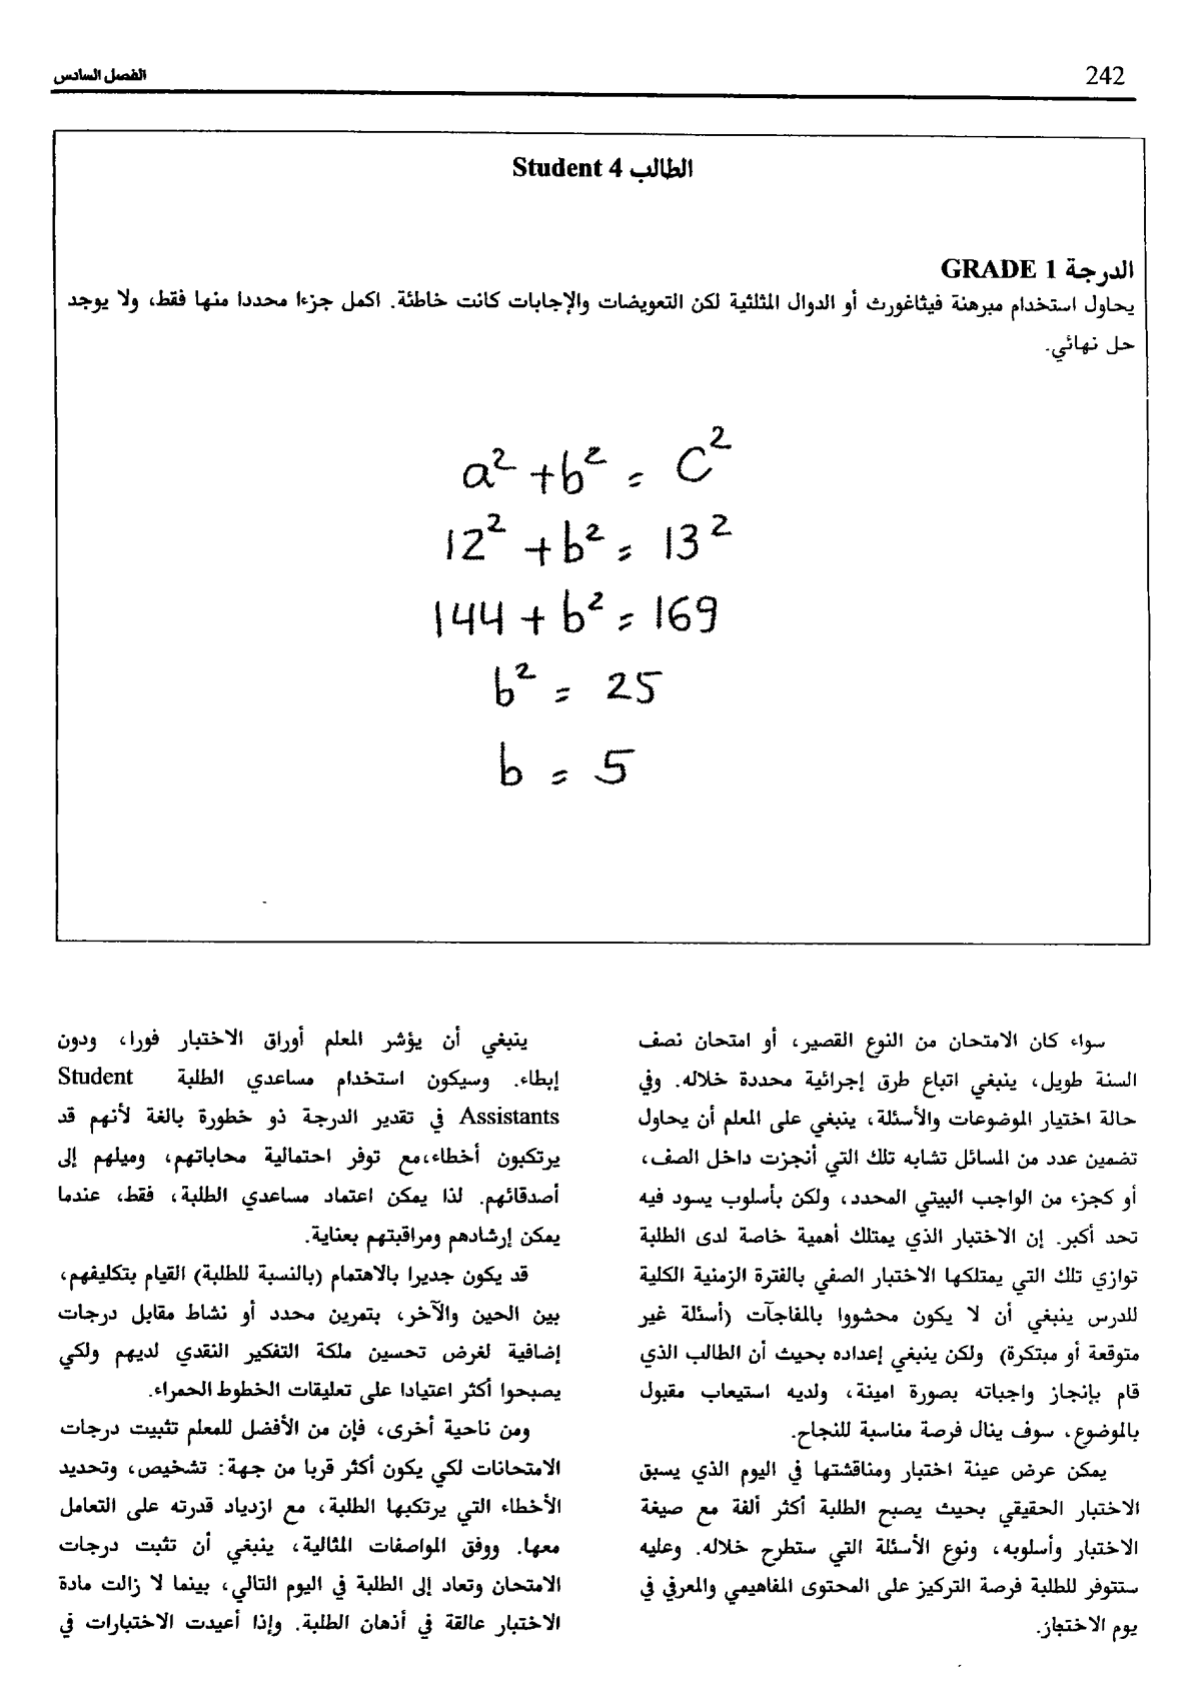 242
الفصل السادس
الطالب Student 4
الدرجة GRADE 1
يحاول استخدام مبرهنة فيثاغورث أو الدوال المثلثية لكن التعويضات والإجابات كانت خاطئة. اكمل جزءا محددا منها فقط، ولا يوجد
حل نهائي.
a² + b² = c²
12² + b² = 13²
144 + b² = 169
b² = 25
b = 5
سواء كان الامتحان من النوع القصير، أو امتحان نصف
السنة طويل، ينبغي اتباع طرق إجرائية محددة خلاله. وفي
حالة اختيار الموضوعات والأسئلة، ينبغي على المعلم أن يحاول
تضمين عدد من المسائل تشابه تلك التي أنجزت داخل الصف،
أو كجزء من الواجب البيتي المحدد، ولكن بأسلوب يسود فيه
تحد أكبر. إن الاختبار الذي يمتلك أهمية خاصة لدى الطلبة
توازي تلك التي يمتلكها الاختبار الصفي بالفترة الزمنية الكلية
للدرس ينبغي أن لا يكون محشووا بالمفاجآت (أسئلة غير
متوقعة أو مبتكرة) ولكن ينبغي إعداده بحيث أن الطالب الذي
قام بإنجاز واجباته بصورة امينة، ولديه استيعاب مقبول
بالموضوع، سوف ينال فرصة مناسبة للنجاح.
يمكن عرض عينة اختبار ومناقشتها في اليوم الذي يسبق
الاختبار الحقيقي بحيث يصبح الطلبة أكثر ألفة مع صيغة
الاختبار وأسلوبه، ونوع الأسئلة التي ستطرح خلاله. وعليه
ستتوفر للطلبة فرصة التركيز على المحتوى المفاهيمي والمعرفي في
يوم الاختبار.
ينبغي أن يؤشر المعلم أوراق الاختبار فورا، ودون
إبطاء. وسيكون استخدام مساعدي الطلبة Student
Assistants في تقدير الدرجة ذو خطورة بالغة لأنهم قد
يرتكبون أخطاء،مع توفر احتمالية محاباتهم، وميلهم إلى
أصدقائهم. لذا يمكن اعتماد مساعدي الطلبة، فقط، عندما
يمكن إرشادهم ومراقبتهم بعناية.
قد يكون جديرا بالاهتمام (بالنسبة للطلبة) القيام بتكليفهم،
بين الحين والآخر، بتمرين محدد أو نشاط مقابل درجات
إضافية لغرض تحسين ملكة التفكير النقدي لديهم ولكي
يصبحوا أكثر اعتيادا على تعليقات الخطوط الحمراء.
ومن ناحية أخرى، فإن من الأفضل للمعلم تثبيت درجات
الامتحانات لكي يكون أكثر قربا من جهة: تشخيص، وتحديد
الأخطاء التي يرتكبها الطلبة، مع ازدياد قدرته على التعامل
معها. ووفق المواصفات المثالية، ينبغي أن تثبت درجات
الامتحان وتعاد إلى الطلبة في اليوم التالي، بينما لا زالت مادة
الاختبار عالقة في أذهان الطلبة. وإذا أعيدت الاختبارات في